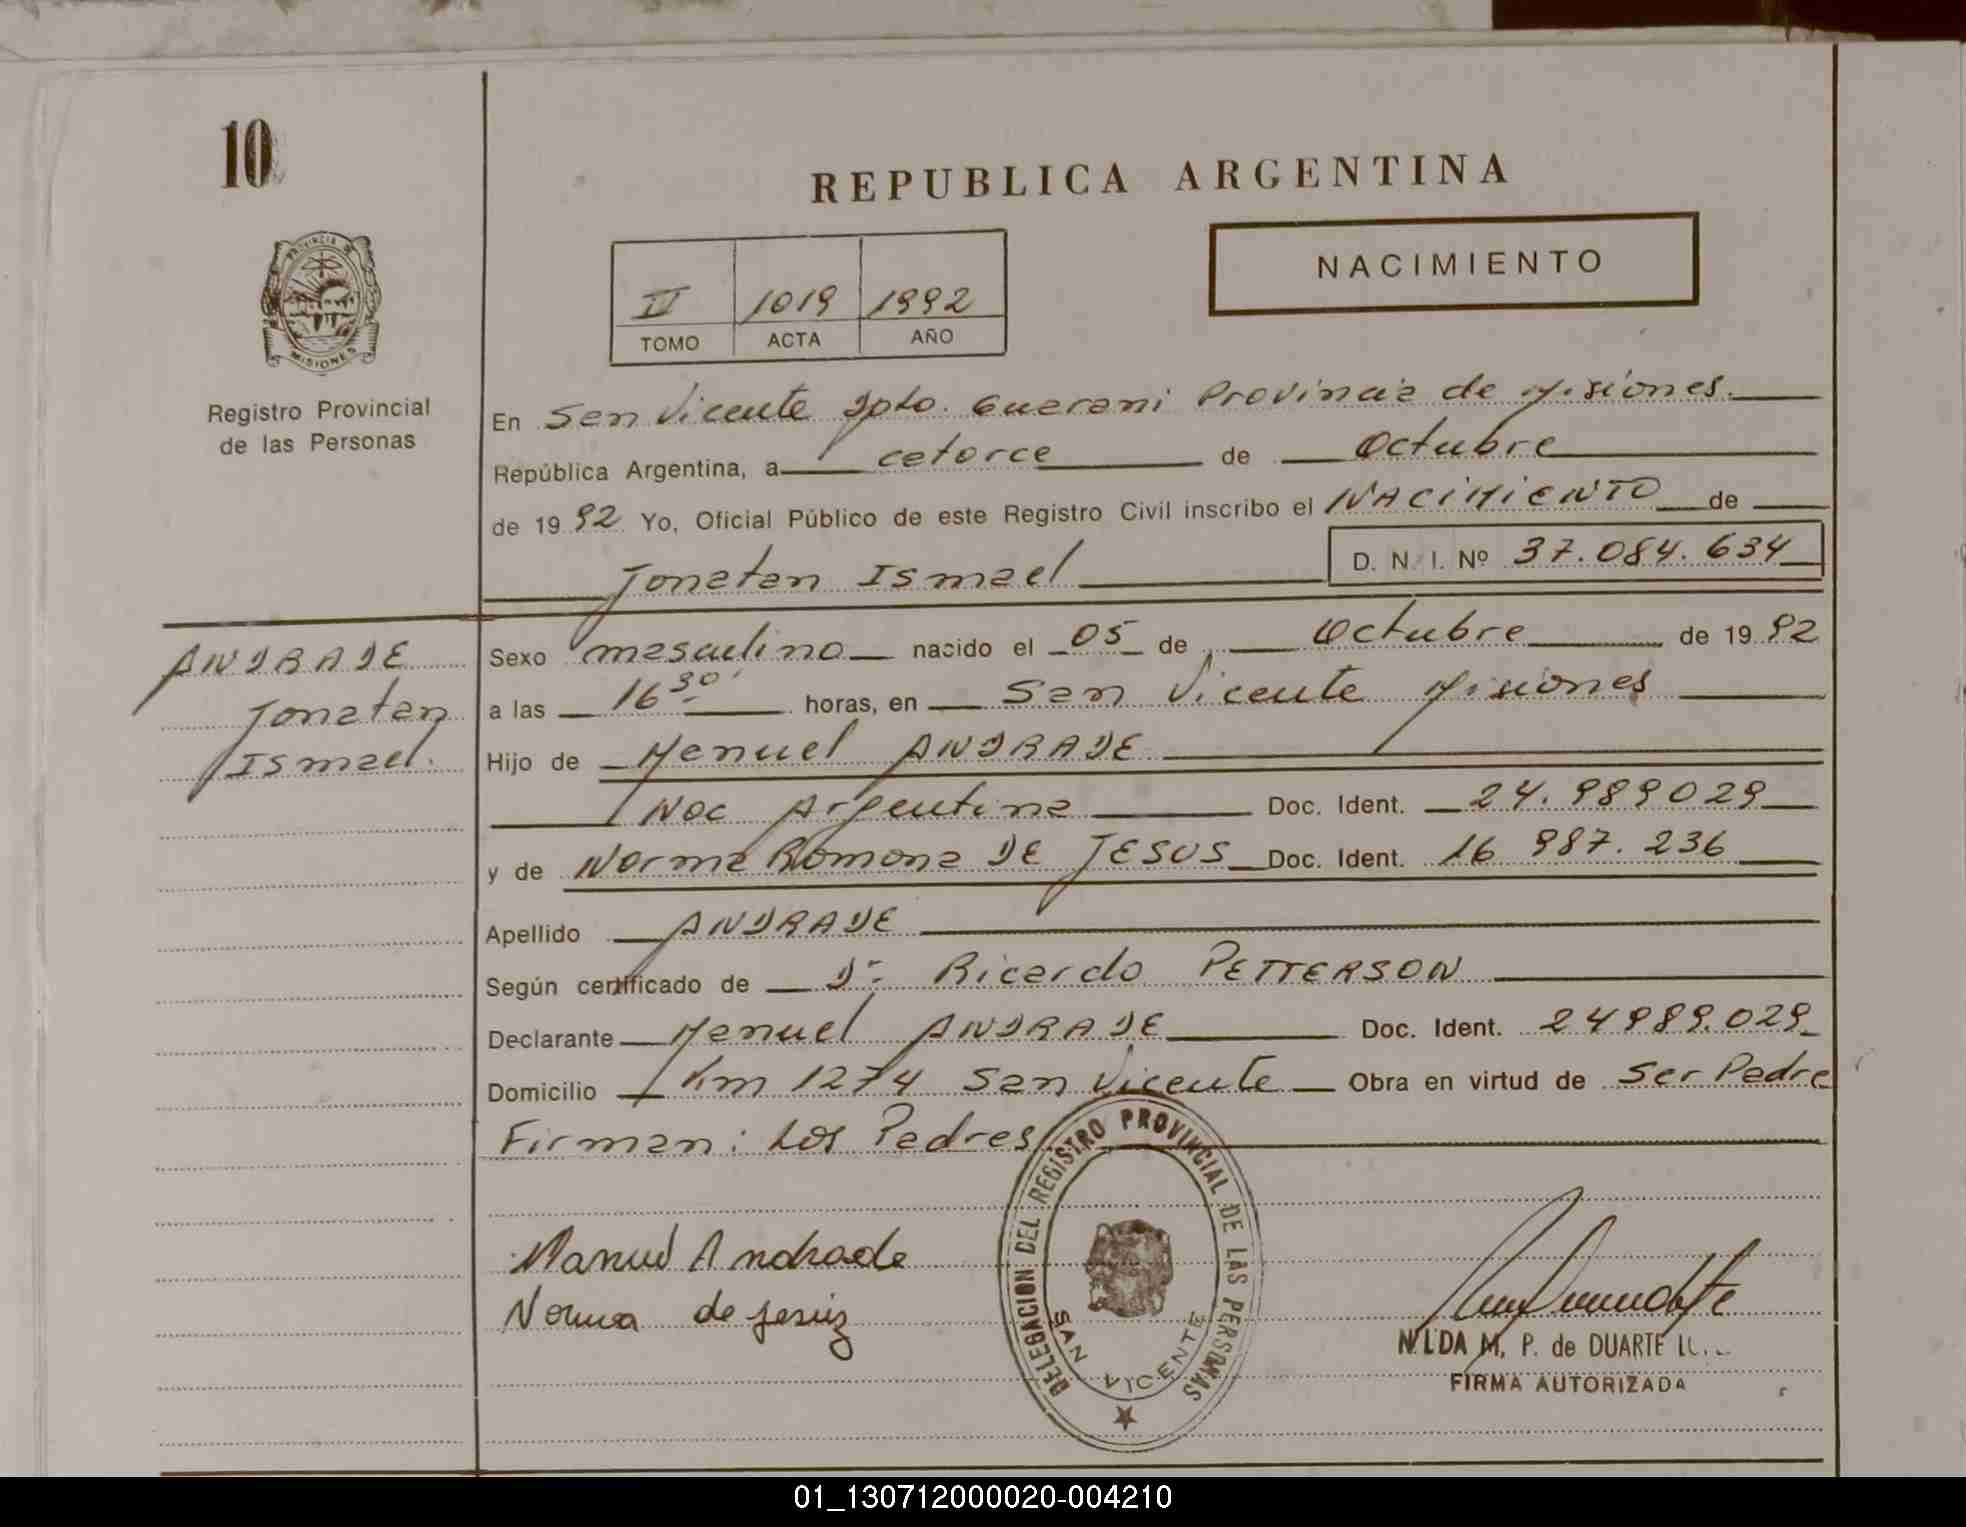 10
REPUBLICA ARGENTINA
NACIMIENTO
PROVINCIA DE
MISIONES
II 1019 1992
TOMO ACTA AÑO
Registro Provincial
de las Personas
En San Vicente Dpto. Guarani Provincia de Misiones.
República Argentina, a catorce de Octubre
de 1992 Yo, Oficial Público de este Registro Civil inscribo el NACIMIENTO de
Jonatan Ismael D. N. I. Nº 37.084.634
ANDRADE
Jonatan
Ismael.
Sexo masculino nacido el 05 de Octubre de 1992
a las 16 30' horas, en San Vicente Misiones
Hijo de Manuel ANDRADE
Nac Argentina Doc. Ident. 24.989029
y de Norma Ramona DE JESUS Doc. Ident. 16 987.236
Apellido ANDRADE
Según certificado de Dr Ricardo PETTERSON
Declarante Manuel ANDRADE Doc. Ident. 24989.029
Domicilio Km 1274 San Vicente Obra en virtud de Ser Padre
Firman: Los Padres
DELEGACION DEL REGISTRO PROVINCIAL DE LAS PERSONAS
SAN VICENTE
Manuel Andrade
Norma de Jesús
NILDA M. P. de DUARTE
FIRMA AUTORIZADA
01_130712000020-004210